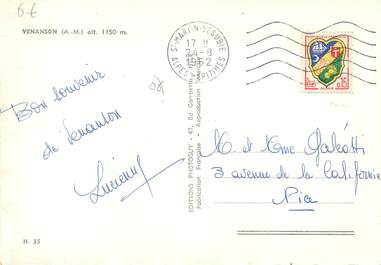 6€
VENANSON (A.-M.) alt. 1150 m.
ST-MARTIN-VESUBIE
17 H
24-8
ALPES MARITIMES
0,15
Bon souvenir
de Venanson
Lucienne
EDITIONS PHOTOGUY - 47, Bd Gambetta
Fabrication Française - Reproduction
M et Mme Galéotti
3 avenue de la Californie
Nice
H. 35